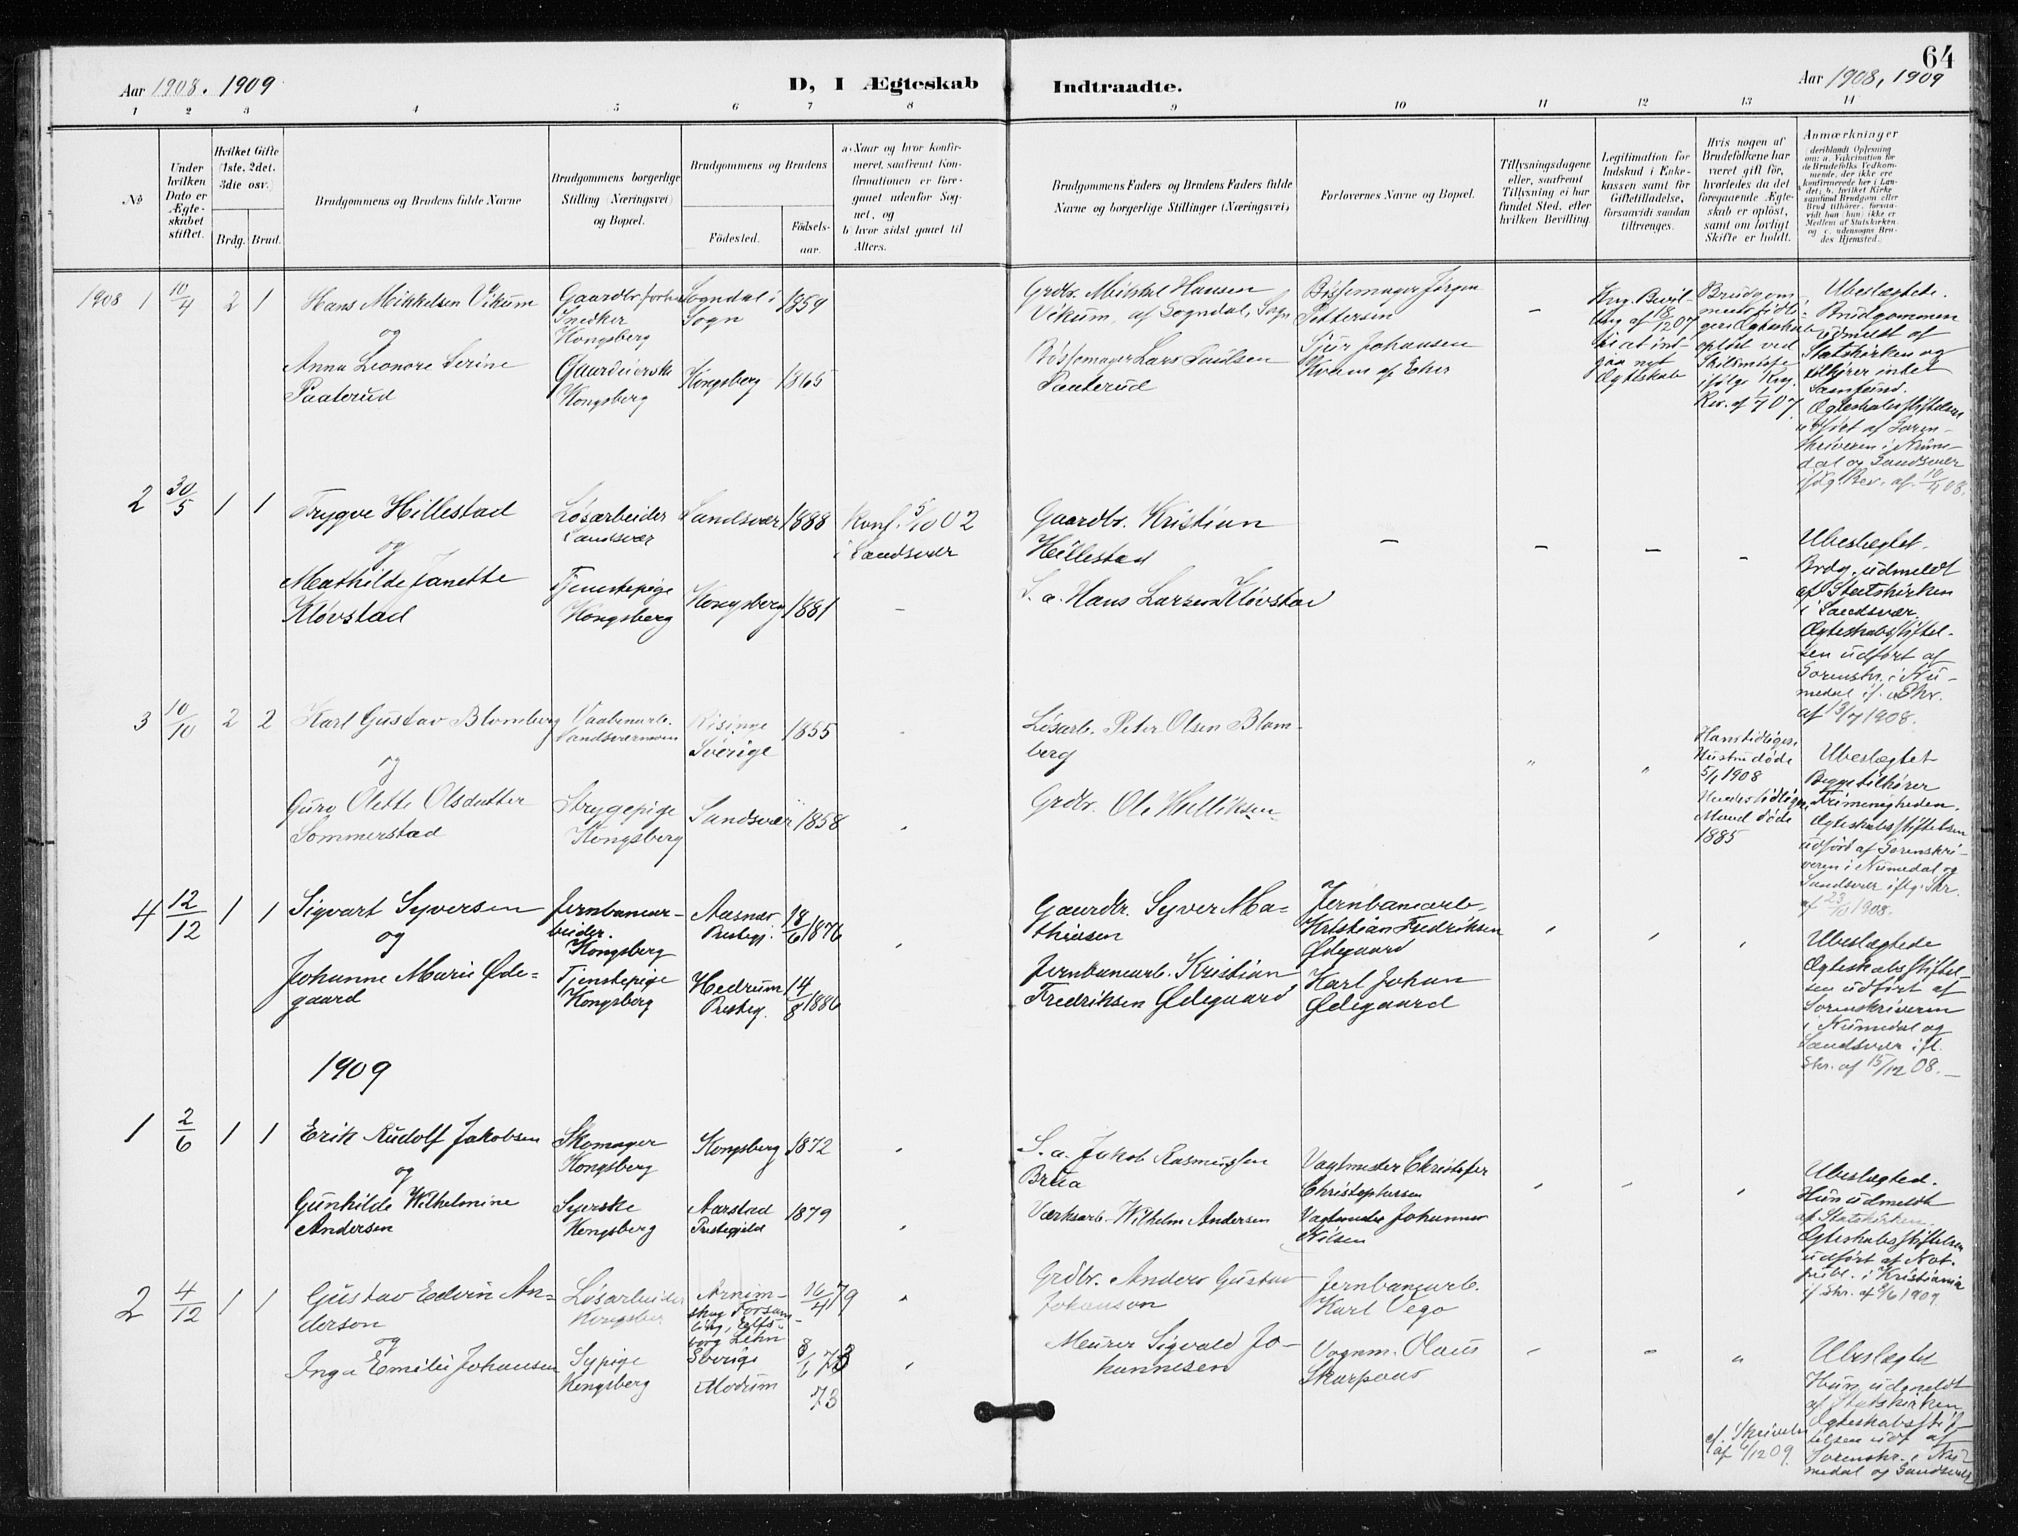 64
Aar 1908. 1909
D, I Ægteskab
Indtraadte.
Aar 1908, 1909
1 2 3 4 5 6 7 8 9 10 11 12 13 14
No
Under hvilken Dato er Ægteskabet stiftet.
Hvilket Gifte (1ste, 2det, 3die osv.)
Brdg. Brud.
Brudgommens og Brudens fulde Navne
Brudgommens borgerlige Stilling (Næringsvei) og Bopæl.
Brudgommens og Brudens
Fødested.
Fødselsaar.
a. Naar og hvor konfirmeret, saafremt Konfirmationen er foregaaet udenfor Sognet, og
b. hvor sidst gaaet til Alters.
Brudgommens Faders og Brudens Faders fulde Navne og borgerlige Stillinger (Næringsvei)
Forlovernes Navne og Bopæl.
Tillysningsdagene eller, saafremt Tillysning ei har fundet Sted, efter hvilken Bevilling.
Legitimation for Indskud i Enkekassen samt for Giftetilladelse, forsaavidt saadan tiltrænges.
Hvis nogen af Brudefolkene har været gift før, hvorledes da det foregaaende Ægteskab er opløst, samt om lovligt Skifte er holdt.
Anmærkninger
1908 1
10/4
2 1
Hans Mikkelsen Vikum
og
Anna Leonore Serine
Paaterud
Snedker
Kongsberg
Gaardeierske
Kongsberg
Sogndal i
Sogn
1859
Kongsberg 1865
Grdbr. Mikkel Hansen
Vikum, af Sogndal, Sogn
Bøssemager Lars Paulsen
Paaterud
Bøssemager Jørgen
Pettersen
Sjur Johansen
Kvam af Eker
-
Kng. Bevil-
ling af 18/12 07
til at ind-
gaa nyt
Ægteskab
Brudgom-
mens tidli-
gere Ægteskab
opløst ved
Skilsmisse
ifølge Kng.
Ubeslægtede.
Brudgommen
udmeldt af
Statskirken og
tilhører intet
Samfund.
Ægteskabsstiftelsen
udført af Soren-
skriveren i Nume-
dal og Sandsvær
ifølg. Rev. af 10/4 08.
2
30/5
1 1
Trygve Hillestad
og
Mathilde Janette
Kløvstad
Løsarbeider
Sandsvær
Tjenestepige
Kongsberg
Sandsvær 1888
Kongsberg 1881
Konf. 5/10 02
i Sandsvær
-
Gaardbr. Kristian
Hillestad
S. a. Hans Larsen Kløvstad
- - - -
Ubeslægtet.
Brdg. udmeldt
af Statskirken
i Sandsvær
Ægteskabsstiftel-
sen udført af
Sorenskr. i Nu-
medal if. Skr.
af 13/7 1908.
3
10/10
2 2
Karl Gustav Blomberg
og
Guro Olette Olsdatter
Sommerstad
Vaabenarb.
Sandsværmoen
Strygepige
Kongsberg
Risinge
Sverige
1855
Sandsvær 1858
Løsarb. Peter Olsen Blom-
berg
Grdbr. Ole Helliksen
Hans tidligere
Hustru døde
5/1 1908
Hendes tidligere
Mand døde
1885
Ubeslægtet
Begge tilhører
Frimenigheden.
Ægteskabsstiftelsen
udført af Sorenskri-
veren i Numedal og
Sandsvær iflg. Skr.
af 23/10 1908.
4
12/12
1 1
Sigvart Syversen
og
Johanne Marie Øde-
gaard
Jernbanear-
beider.
Kongsberg
Tjenstepige
Kongsberg
Aasnæs
Prestegj.
18/6 1876
Hedrum
Presteg.
14/8 1886
Gaardbr. Syver Ma-
thiesen
Jernbanearb. Kristian
Fredriksen Ødegaard
Jernbanearb.
Kristian Fredriksen
Ødegaard
Karl Johan
Ødegaard
Ubeslægtede
Ægteskabsstiftel-
sen udført af
Sorenskriveren
i Numedal og
Sandsvær ifl.
Skr. af 15/12 08. -
1909
1
2/6
1 1
Erik Rudolf Jakobsen
og
Gunhilde Wilhelmine
Andersen
Skomager
Kongsberg
Syerske
Kongsberg
Kongsberg 1872
Aarstad
Prestegjeld
1879
S. a. Jakob Rasmussen
Brua
Værksarb. Wilhelm Andersen
Vagtmester Christofer
Christophersen
Vagtmester Johannes
Nilsen
Ubeslægted.
Hun udmeldt
af Statskirken.
Ægteskabsstiftelsen
udført af Not.
publ. i Kristiania
if. skr. af 2/6 1909.
2
4/12
1 1
Gustav Edvin An-
derson
og
Inga Emilie Johansen
Løsarbeider
Kongsberg
Sypige
Kongsberg
Sverige
Modum
16/4 79
73
Grdbr. Anders Gustav
Johanson
Meurer Sigvald Jo-
hannesen
Jernbanearb.
Karl Vego
Vognm. Olaus
cf. Skrivelse
af 6/12 09.
Ubeslægtet
Hun udmeldt
af Statskirken
Ægteskabsstif-
telsen udf. af
Sorenskr. i Nu-
medal og Sandsvær